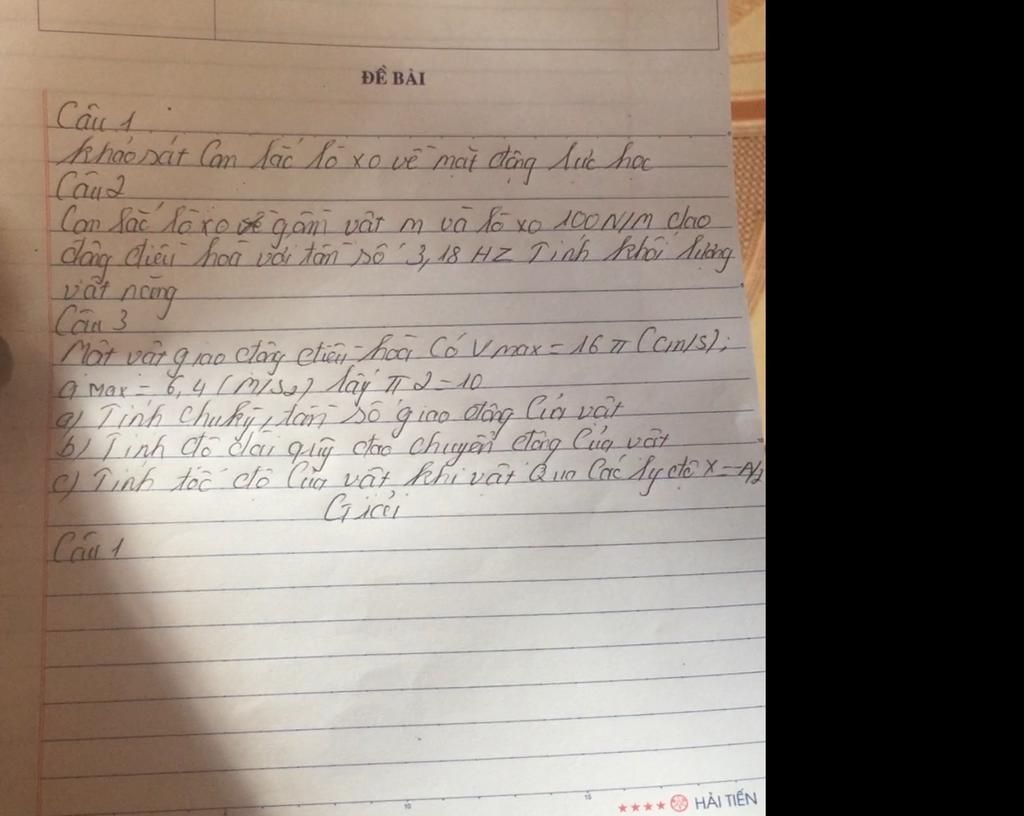 ĐỀ BÀI
Câu 1
khảo sát Con lắc lò xo về mặt động lực học
Câu 2
Con lắc lò xo gồm vật m và lò xo 100N/M dao
động điều hoà với tần số 3,18 HZ Tính khối lượng
vật nặng
Câu 3
Một vật giao động điều hoà Có Vmax = 16 π (Cm/s);
a Max = 6,4 (M/S2) lấy π 2 = 10
a) Tính chu kỳ, tần số giao động Của vật
b) Tính độ dài quỹ đạo chuyển động Của vật
c) Tính tốc độ Của vật khi vật Qua Các ly độ X = -A/2
Giải
Câu 1
10
15
HẢI TIẾN